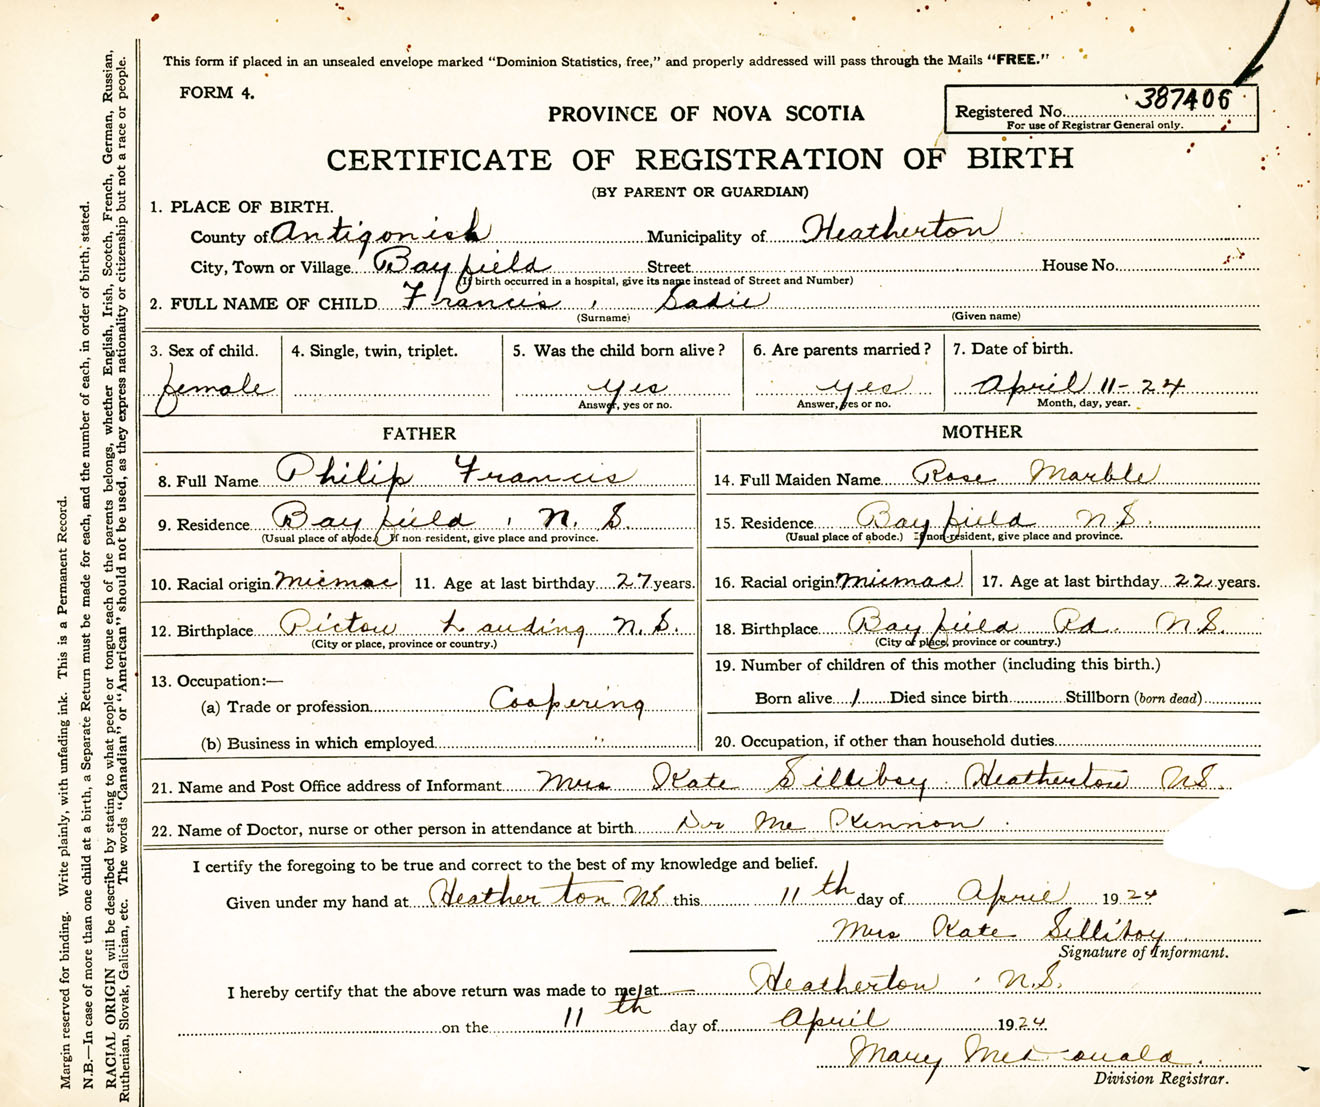 This form if placed in an unsealed envelope marked "Dominion Statistics, free," and properly addressed will pass through the Mails "FREE."
FORM 4.
PROVINCE OF NOVA SCOTIA
Registered No. 387406
For use of Registrar General only.
CERTIFICATE OF REGISTRATION OF BIRTH
(BY PARENT OR GUARDIAN)
1. PLACE OF BIRTH.
County of Antigonish Municipality of Heatherton
City, Town or Village Bayfield Street House No.
(If birth occurred in a hospital, give its name instead of Street and Number)
2. FULL NAME OF CHILD Francis , Sadie
(Surname) (Given name)
3. Sex of child. 4. Single, twin, triplet. 5. Was the child born alive? 6. Are parents married? 7. Date of birth.
female yes yes April 11-24
Answer, yes or no. Answer, yes or no. Month, day, year.
FATHER MOTHER
8. Full Name Philip Francis 14. Full Maiden Name Rose Marble
9. Residence Bayfield , N.S. 15. Residence Bayfield N.S.
(Usual place of abode.) If non-resident, give place and province. (Usual place of abode.) If non-resident, give place and province.
10. Racial origin Micmac 11. Age at last birthday 27 years. 16. Racial origin Micmac 17. Age at last birthday 22 years.
12. Birthplace Pictou Landing N.S. 18. Birthplace Bayfield Rd. N.S.
(City or place, province or country.) (City or place, province or country.)
13. Occupation:— 19. Number of children of this mother (including this birth.)
(a) Trade or profession Coopering Born alive 1 Died since birth Stillborn (born dead)
(b) Business in which employed " 20. Occupation, if other than household duties
21. Name and Post Office address of Informant Mrs Kate Silliboy Heatherton N.S.
22. Name of Doctor, nurse or other person in attendance at birth Dr Mc Kinnon
I certify the foregoing to be true and correct to the best of my knowledge and belief.
Given under my hand at Heatherton NS this 11th day of April 1924
Mrs Kate Silliboy
Signature of Informant.
I hereby certify that the above return was made to me at Heatherton , N.S.
on the 11th day of April 1924
Mary McDonald
Division Registrar.
Margin reserved for binding. Write plainly, with unfading ink. This is a Permanent Record.
N.B.—In case of more than one child at a birth, a Separate Return must be made for each, and the number of each, in order of birth, stated.
RACIAL ORIGIN will be described by stating to what people or tongue each of the parents belongs, whether English, Irish, Scotch, French, German, Russian,
Ruthenian, Slovak, Galician, etc. The words "Canadian" or "American" should not be used, as they express nationality or citizenship but not a race or people.